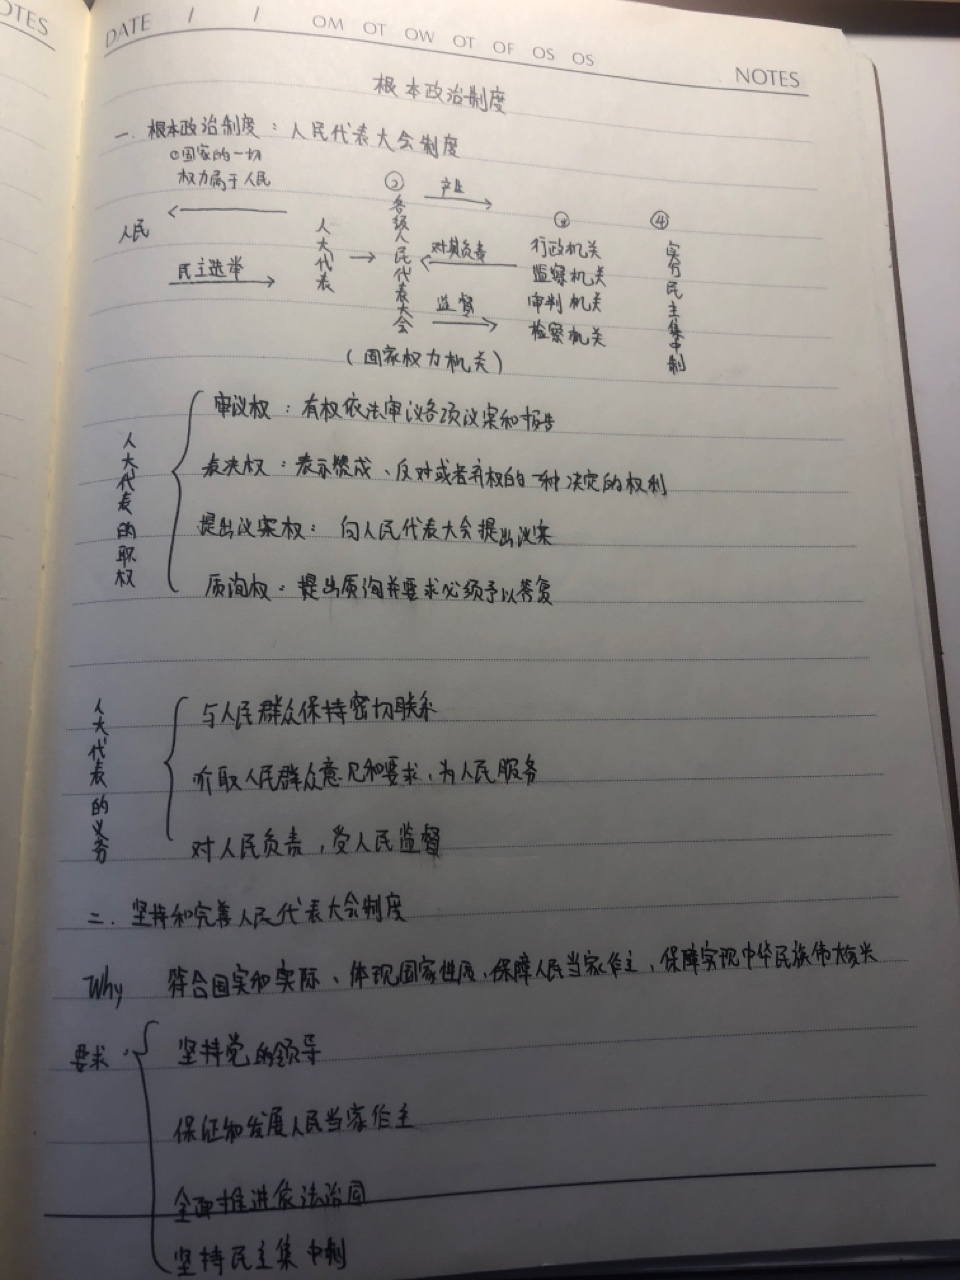 OTES
DATE / / OM OT OW OT OF OS OS NOTES
根本政治制度
一. 根本政治制度：人民代表大会制度
①国家的一切
权力属于人民
人民
民主选举
人大代表
②
各级人民代表大会
(国家权力机关)
产生
对其负责
监督
③
行政机关
监察机关
审判机关
检察机关
④
实行民主集中制
人大代表的职权
审议权：有权依法审议各项议案和报告
表决权：表示赞成、反对或者弃权的一种决定的权利
提出议案权：向人民代表大会提出议案
质询权：提出质询并要求必须予以答复
人大代表的义务
与人民群众保持密切联系
听取人民群众意见和要求，为人民服务
对人民负责，受人民监督
二. 坚持和完善人民代表大会制度
Why 符合国家和实际、体现国家性质、保障人民当家作主、保障实现中华民族伟大复兴
要求：
坚持党的领导
保证和发展人民当家作主
全面推进依法治国
坚持民主集中制